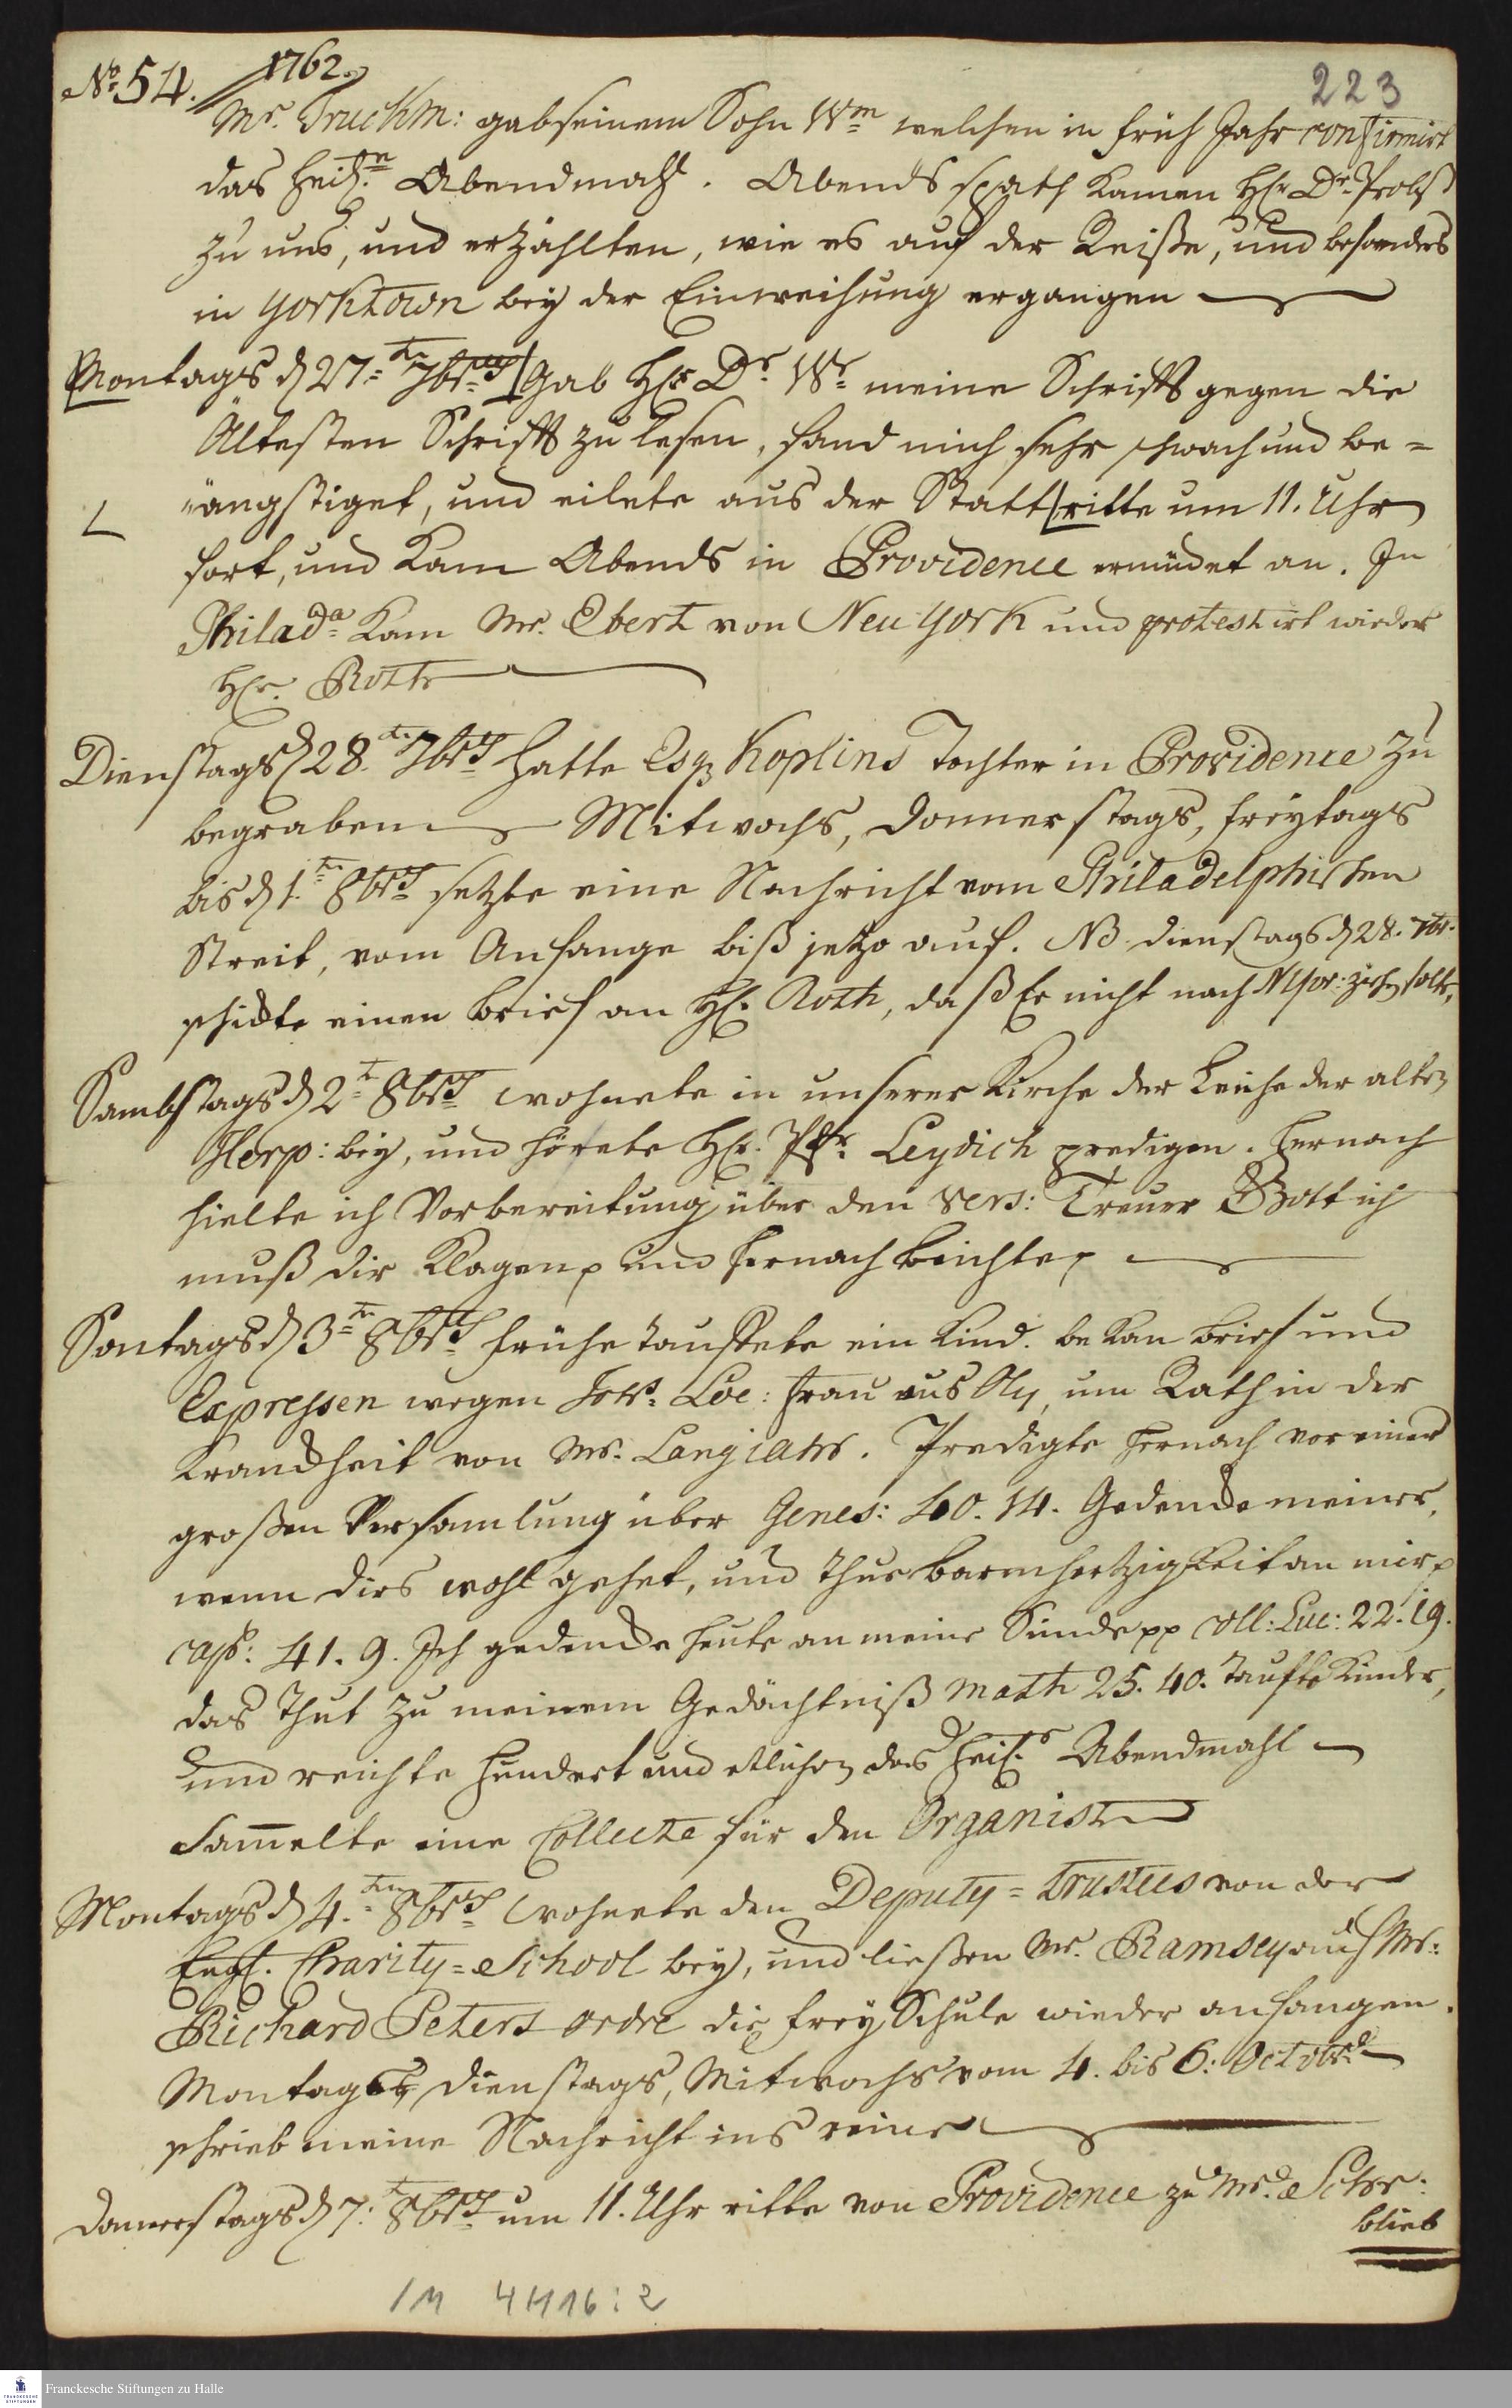 No. 54. 1762. 223
Mr. Truckm: gab seinem Sohn Wm welchen in früh Jahr confirmirt
das heil. Abendmahl. Abends spath kamen H. Dr. Probst
zu uns, und erzählten, wie es auf der Reiße, und besonders
in Yorktown bey der Einweihung ergangen
Montags d 27ten 7bris Gab H. Dr. Wr. meine Schrifft gegen die
Ältesten Schrifft zu lesen, fand mich sehr schwach und be=
ängstiget, und eilete aus der Statt ritte um 11. Uhr
fort, und kam Abends in Providence ermüdet an. In
Philada kam Mr. Ebert von Neu York und protestirt wieder
H. Roth
Dienstags d 28. 7bris hatte Esq Koplins Tochter in Providence zu
begraben Mitwochs, Donnerstags, freytags
bis d 1ten 8bris setzte eine Nachricht vom Philadelphischen
Streit, vom Anfange biß jetzo auf. NB. Dienstags d 28. 7br.
schickte einen Brief an H. Roth, daß Er nicht nach NYor: ziehen solte,
Sambstags d 2t 8bris wohnete in unserer Kirche der Leiche der alten
Herp: bey, und hörete H. Pfr. Leydich predigen. hernach
hielte ich Vorbereitung über den Vers: Treuer Gott ich
muß dir klagen und hernach Beichte
Sontags d 3ten 8bris frühe tauffete ein Kind. bekam Brief und
Expressen wegen Loe: frau aus Oly, um Rath in der
Kranckheit von Mr. Campiaters. Predigte hernach vor einer
großen Versamlung über Genes: 40. 14. Gedencke meiner,
wenn dirs wohl gehet, und thue Barmhertzigkeit an mir
cap: 41. 9. Ich gedencke heute an meine Sünde pp coll: Luc: 22. 19.
das thut zu meinem Gedächtniß Math 25. 40. taufte Kinder,
und reichte hundert und etlichen das heil. Abendmahl
Sam̄elte eine Collecte für den Organist
Montags d 4.ten 8bris wohnete den Deputy=Trustees von der
Engl. Charity=School bey, und ließen Mr. Ramsey auf Mr.
Richard Peters ordre die frey Schule wieder anfangen.
Montags, Dienstags, Mitwochs vom 4. bis 6: Octobr.
schrieb meine Nachricht ins reine
Donnerstags d 7. 8bris um 11. Uhr ritte von Providence zu Mr. Schr:
blieb
1M 4H16:2
Franckesche Stiftungen zu Halle